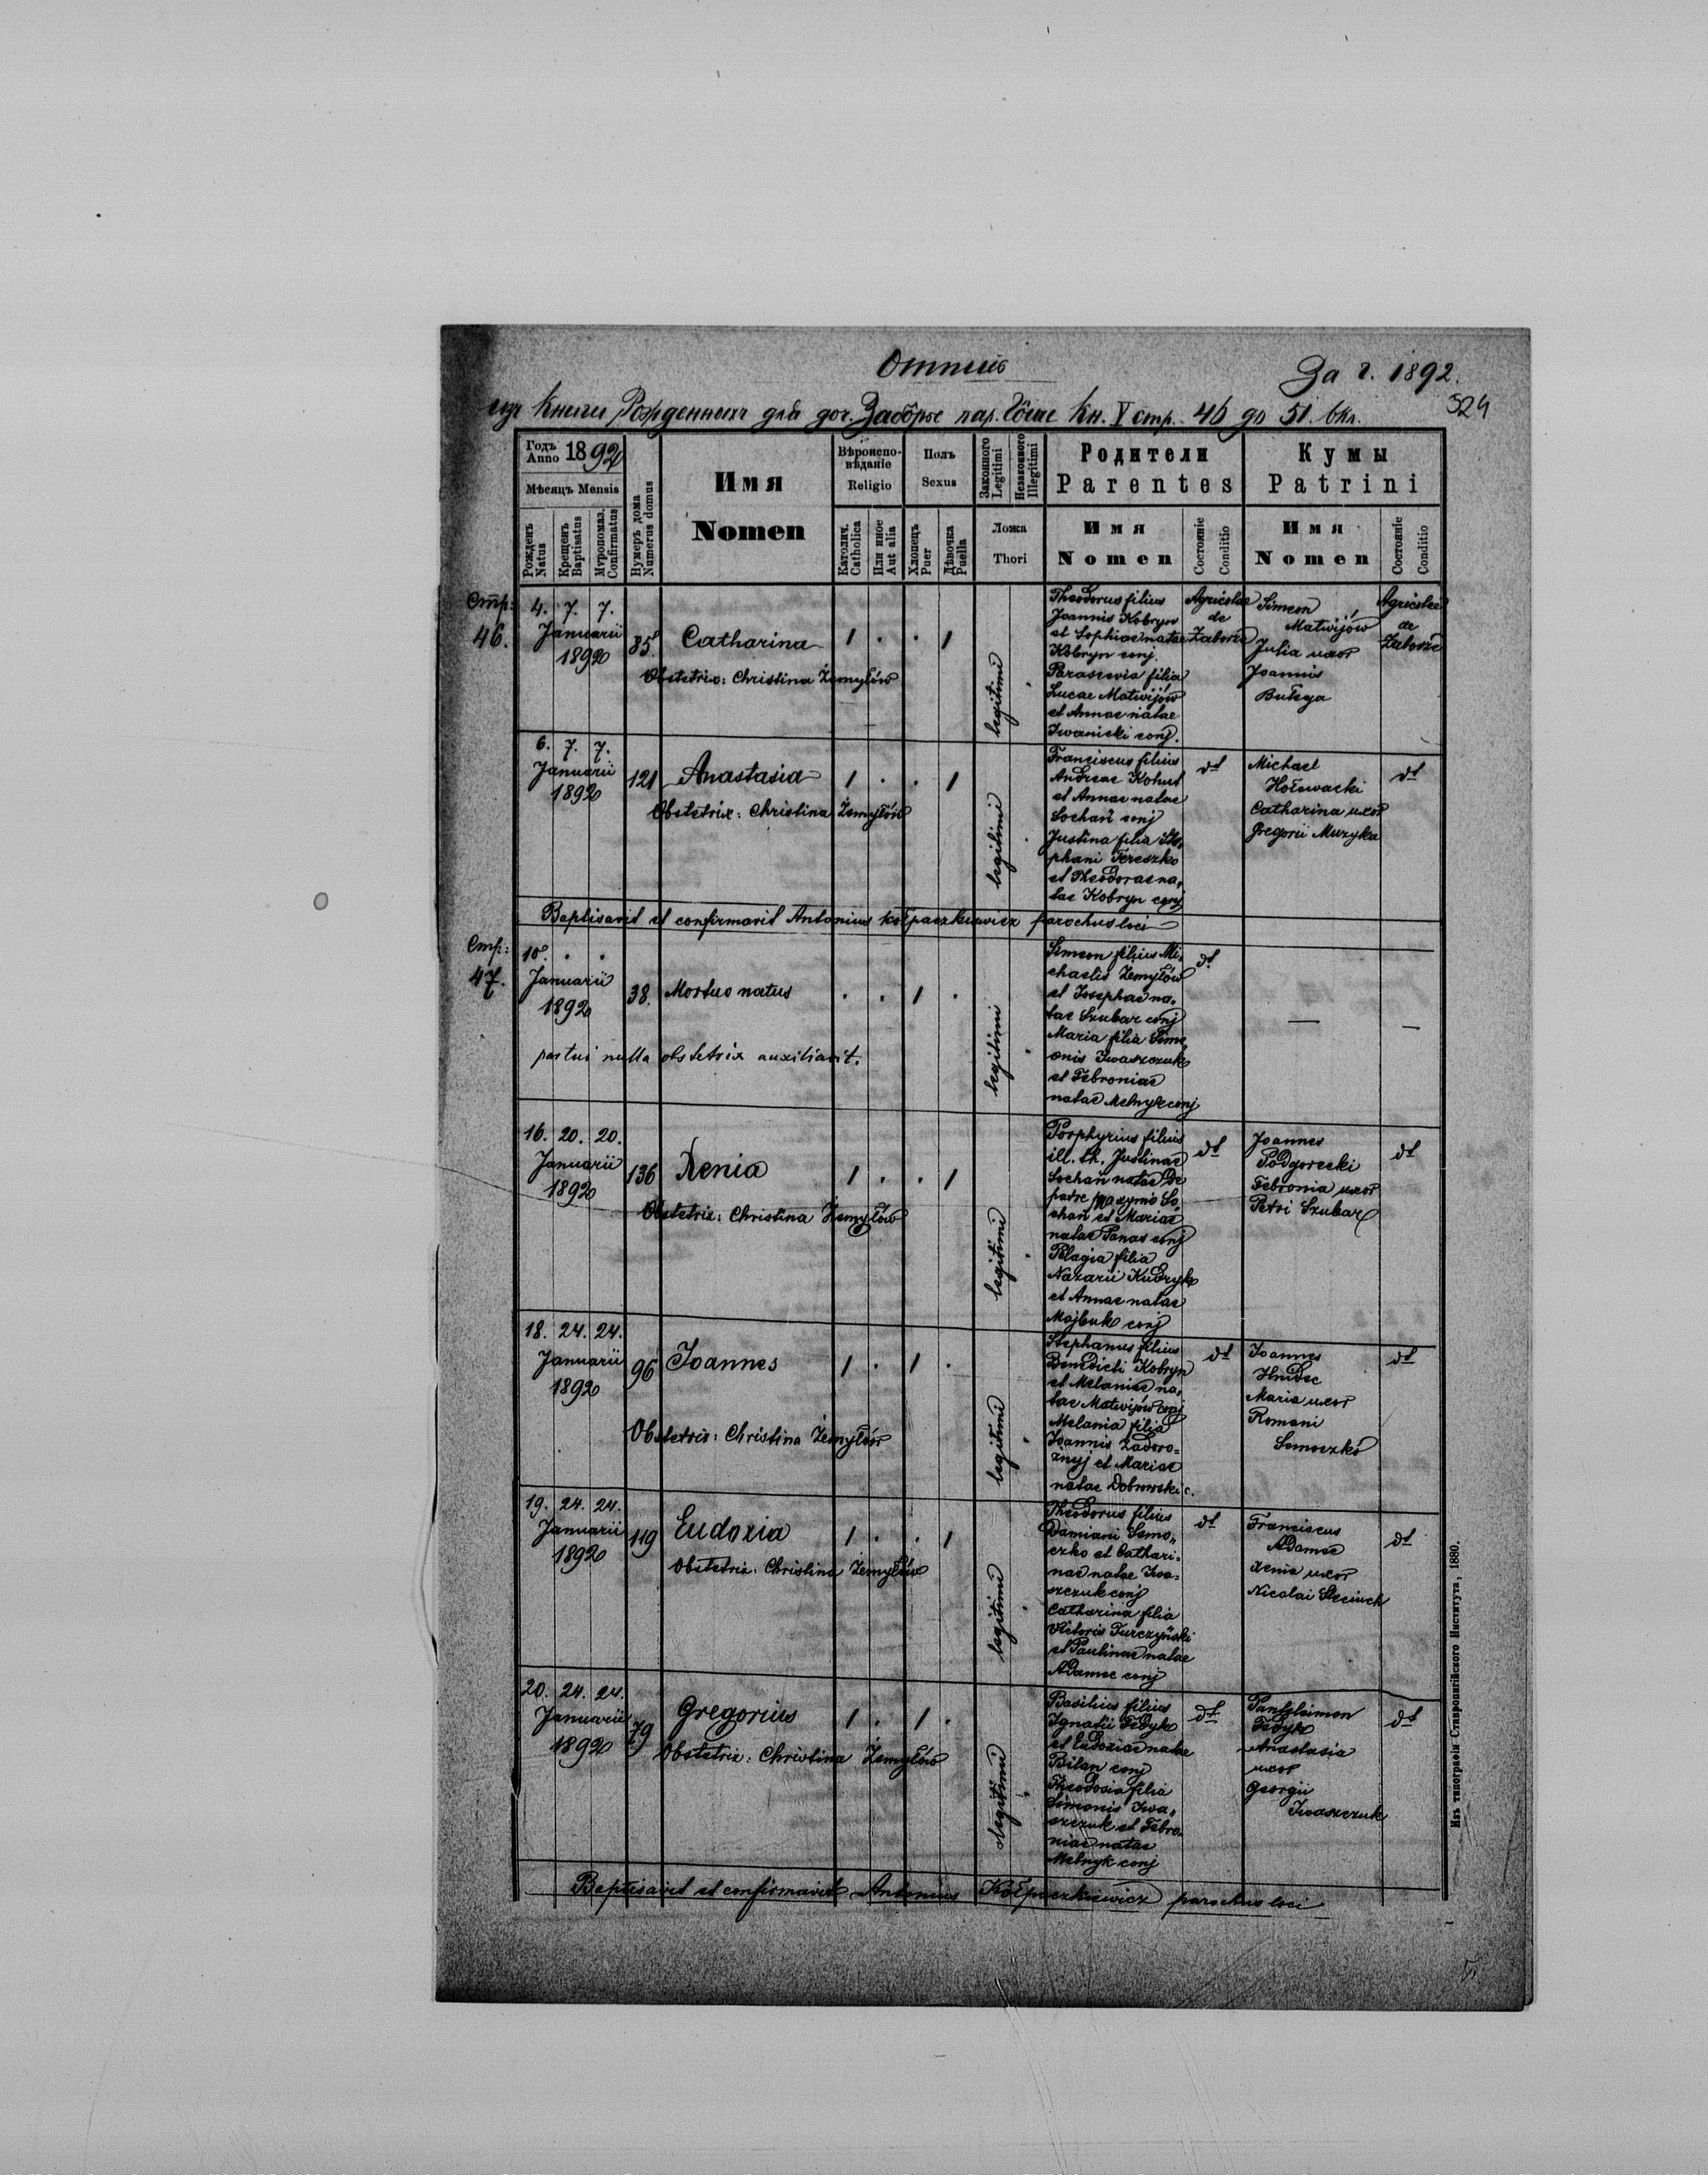 Отпись
За г. 1892.
324
изъ Книги Рожденныхъ для доч. Заборье пар. Кн. V стр. 46 до 51. вкл.
Годъ Anno 1892
Мѣсяцъ Mensis
Рожденъ Natus
Крещенъ Baptisatus
Мѵропомаз. Confirmatus
Нумеръ дома Numerus domus
Имя
Nomen
Вѣроиспо-
вѣданіе
Religio
Католич. Catholica
Или иное Aut alia
Полъ
Sexus
Хлопецъ Puer
Дѣвочка Puella
Законного Legitimi
Незаконного Illegitimi
Ложа
Thori
Родители
Parentes
Имя
Nomen
Состояніе Conditio
Кумы
Patrini
Имя
Nomen
Состояніе Conditio
Стр:
46.
4. 7. 7.
Januarii
1892
85.
Catharina
1 . . 1
Obstetrix: Christina Żemyłów
legitimi
Theodorus filius
Joannis Kobryn
et Sophiae natae
Kobryn conj.
Parascevia filia
Lucae Matwijów
et Annae natae
Iwanicki conj.
Agricolae
de
Zaborze
Simeon
Matwijów
Julia uxor
Joannis
Bułyga
Agricolae
de
Zaborze
6. 7. 7.
Januarii
1892
121
Anastasia
1 . . 1
Obstetrix: Christina Żemyłów
legitimi
Franciscus filius
Andreae Kohut
et Annae natae
Sochań conj
Justina filia Ste,
phani Tereszko
et Theodorae na,
tae Kobryn conj
dt
Michael
Hołowacki
Catharina uxor
Gregorii Muzyka
dt
Baptisavit et confirmavit Antonius Kołpaczkiewicz parochus loci
Стр:
47.
10. . .
Januarii
1892
38.
Mortuo natus
. . 1 .
partui nulla obstetrix auxiliavit.
legitimi
Simeon filius Mi,
chaelis Żemyłów
et Josephae na,
tae Szubar conj
Maria filia Sime,
onis Iwaszczuk
et Febroniae
natae Melnyk conj
dt
—
—
16. 20. 20.
Januarii
1892
136
Xenia
1 . . 1
Obstetrix: Christina Żemyłów
legitimi
Porphyrius filius
ill. th. Justinae
Sochań natae de
patre Maxymo So,
chań et Mariae
natae Panas conj
Pelagia filia
Nazarii Kudryk
et Annae natae
Majbuk conj
dt
Joannes
Podgorecki
Febronia uxor
Petri Szubar
dt
18. 24. 24.
Januarii
1892
96
Joannes
1 . 1 .
Obstetrix: Christina Żemyłów
legitimi
Stephanus filius
Benedicti Kobryn
et Melaniae na,
tae Matwijów conj
Melania filia
Joannis Zadoro=
żnyj et Mariae
natae Dobrowski c.
dt
Joannes
Hnidec
Maria uxor
Romani
Semoczko
dt
19. 24. 24.
Januarii
1892
119
Eudoxia
1 . . 1
Obstetrix: Christina Żemyłów
legitimi
Theodorus filius
Damiani Semo,
czko et Cathari=
nae natae Iwa=
szczuk conj
Catharina filia
Victoris Turczyński
et Paulinae natae
Adamec conj
dt
Franciscus
Adamec
Xenia uxor
Nicolai
dt
20. 24. 24.
Januarii
1892
79
Gregorius
1 . 1 .
Obstetrix: Christina Żemyłów
legitimi
Basilius filius
Ignatii Fedyk
et Eudoxiae natae
Bilan conj
Theodosia filia
Simonis Iwa,
szczuk et Febro,
niae natae
Melnyk conj
dt
Panteleimon
Fedyk
Anastasia
uxor
Georgii
Iwaszczuk
dt
Baptisavit et confirmavit Antonius Kołpaczkiewicz parochus loci
Изъ типографіи Ставропигійского Института, 1880.